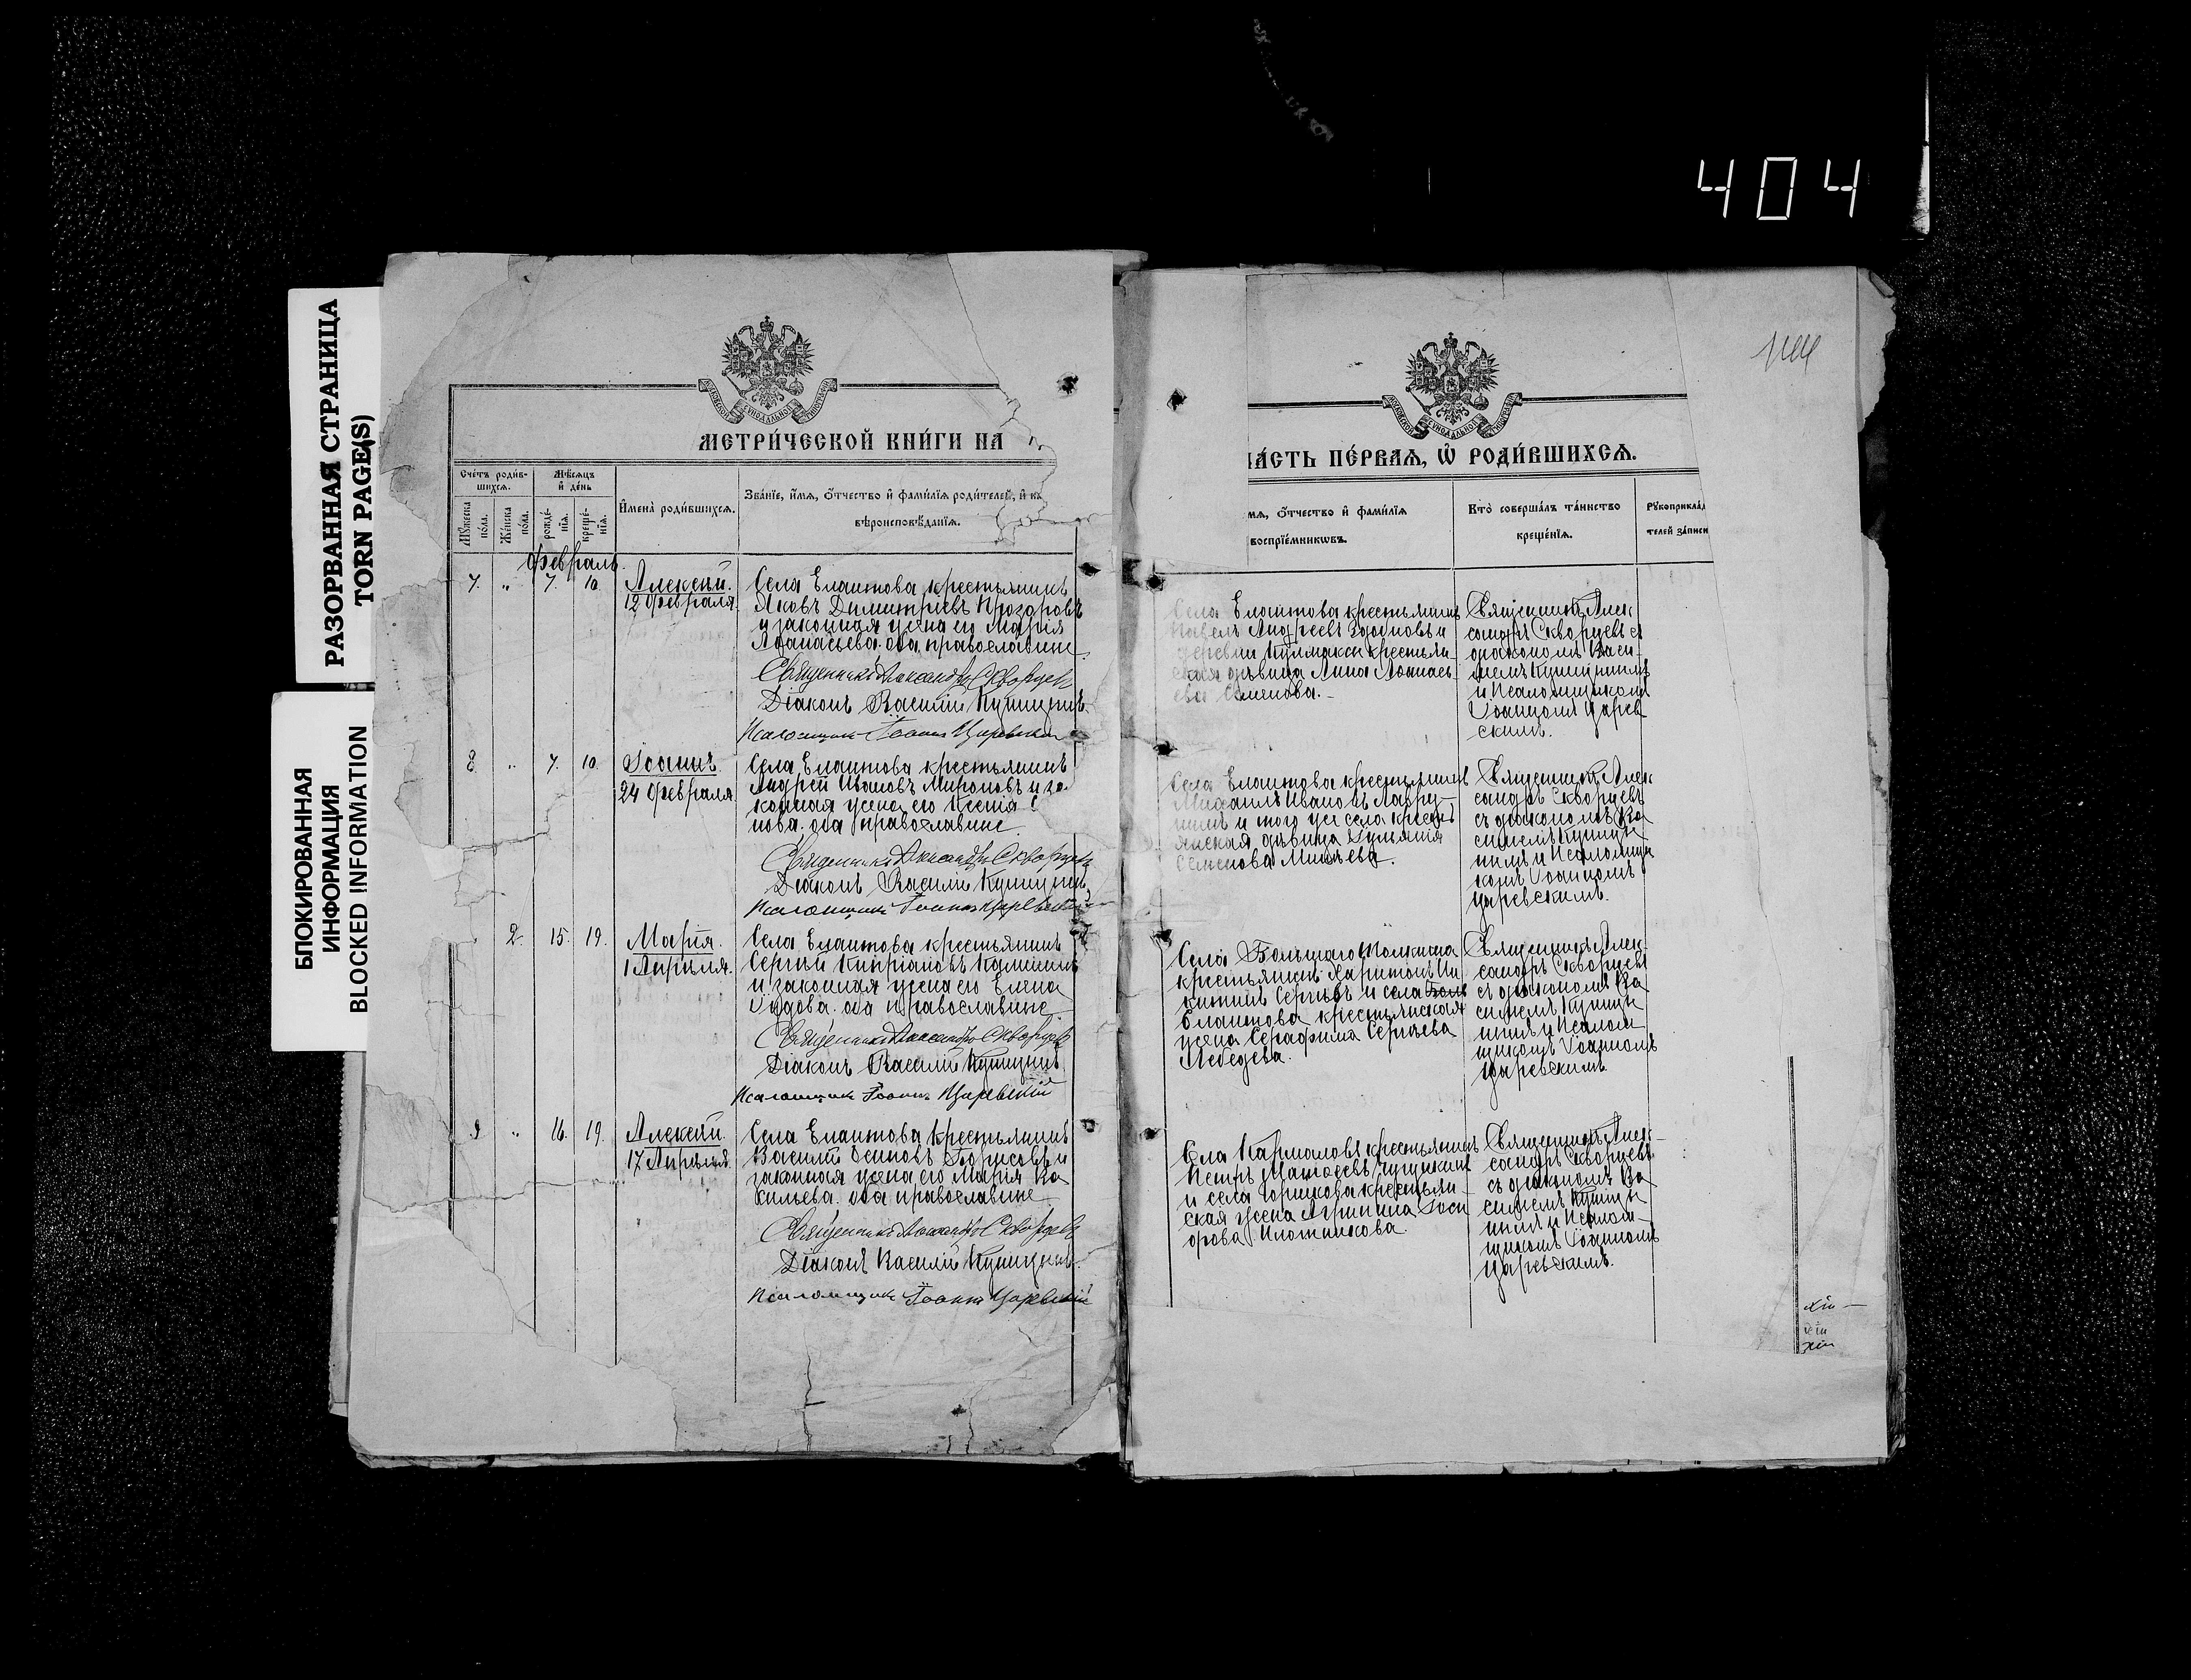 404
РАЗОРВАННАЯ СТРАНИЦА
TORN PAGE(S)
БЛОКИРОВАННАЯ
ИНФОРМАЦИЯ
BLOCKED INFORMATION
МЕТРИ́ЧЕСКОЙ КНИ́ГИ НА
Сче́тъ роди́в-
шихсѧ.
Мѣ́сѧцъ
и҆ де́нь
Мꙋ́жеска по́ла.
Же́нска по́ла.
рожде́-
нїѧ.
креще́-
нїѧ.
И҆мена̀ роди́вшихсѧ.
Зва́нїе, и҆́мѧ, ѻ҆́тчество и҆ фами́лїѧ роди́телей, и҆ ка
вѣроисповѣ́данїѧ.
Февраль
7. " 7. 10.
Алексѣй.
12 февраля.
Села Елаитова крестьянинъ
Яковъ Димитріевъ Прозоровъ
и законная жена его Марія
Афанасьева. оба православные
Священникъ Александръ Скворцевъ
Діаконъ Василій Куницынъ.
Псаломщикъ Іоаннъ Царевскій
8. " 7. 10.
Іоаннъ
24 февраля
Села Елаитова крестьянинъ
Андрей Ивановъ Мироновъ и за-
конная жена его Ксенія
нова. оба православные
Священникъ Александръ Скворцевъ
Діаконъ Василій Куницынъ
Псаломщикъ Іоаннъ Царевскій
2. 15. 19.
Марія.
1 Апрѣля.
Села Елаитова крестьянинъ
Сергѣй Кипріановъ Калининъ
и законная жена его Елена
оба православные
Священникъ Александръ Скворцевъ
Діаконъ Василій Куницынъ.
Псаломщикъ Іоаннъ Царевскій
9 " 16. 19.
Алексѣй.
17 Апрѣля.
Села Елаитова крестьянинъ
Василій Осиповъ Борисовъ и
законная жена его Марія Ва
сильева. оба православные
Священникъ Александръ Скворцевъ
Діаконъ Василій Куницынъ.
Псаломщикъ Іоаннъ Царевскій
ЧА́СТЬ ПЕ́РВАѦ, Ѡ҆ РОДИ́ВШИХСѦ.
мѧ, ѻ҆́тчество и҆ фами́лїѧ
воспрїе́мникѡвъ.
Кто̀ соверша́лъ та́инство
креще́нїѧ.
Рꙋкоприкла́д
телей за́писи
Села Елаитова крестьянинъ
Павелъ Андреевъ и
деревни крестьян-
ская дѣвица Анна Афанась-
ева Семенова.
Священникъ Алек
сандръ Скворцевъ съ
діакономъ Васи-
ліемъ Куницынымъ
и Псаломщикомъ
Іоанномъ Царев
скимъ.
Села Елаитова крестьянинъ
Михаилъ Ивановъ
и того же села кресть
янская дѣвица
Семенова
Священникъ Алек
сандръ Скворцевъ
съ діакономъ Ва
силіемъ Куницы
нымъ и Псаломщи
комъ Іоанномъ
Царевскимъ.
Села Большаго
крестьянинъ Харитонъ Ни
китинъ Сергѣевъ и села
Елаитова крестьянская
жена Серафима Сергѣева
Лебедева.
Священникъ Алек-
сандръ Скворцевъ
съ діакономъ Ва
силіемъ Куницы
нымъ и Псалом
щикомъ Іоанномъ
Царевскимъ
Села крестьянинъ
Петръ
и села крестьян
ская жена
Плотникова.
Священникъ Алек-
сандръ Скворцевъ
съ діакономъ Ва
силіемъ Куницы
нымъ и Псалом-
щикомъ Іоанномъ
Царевскимъ.